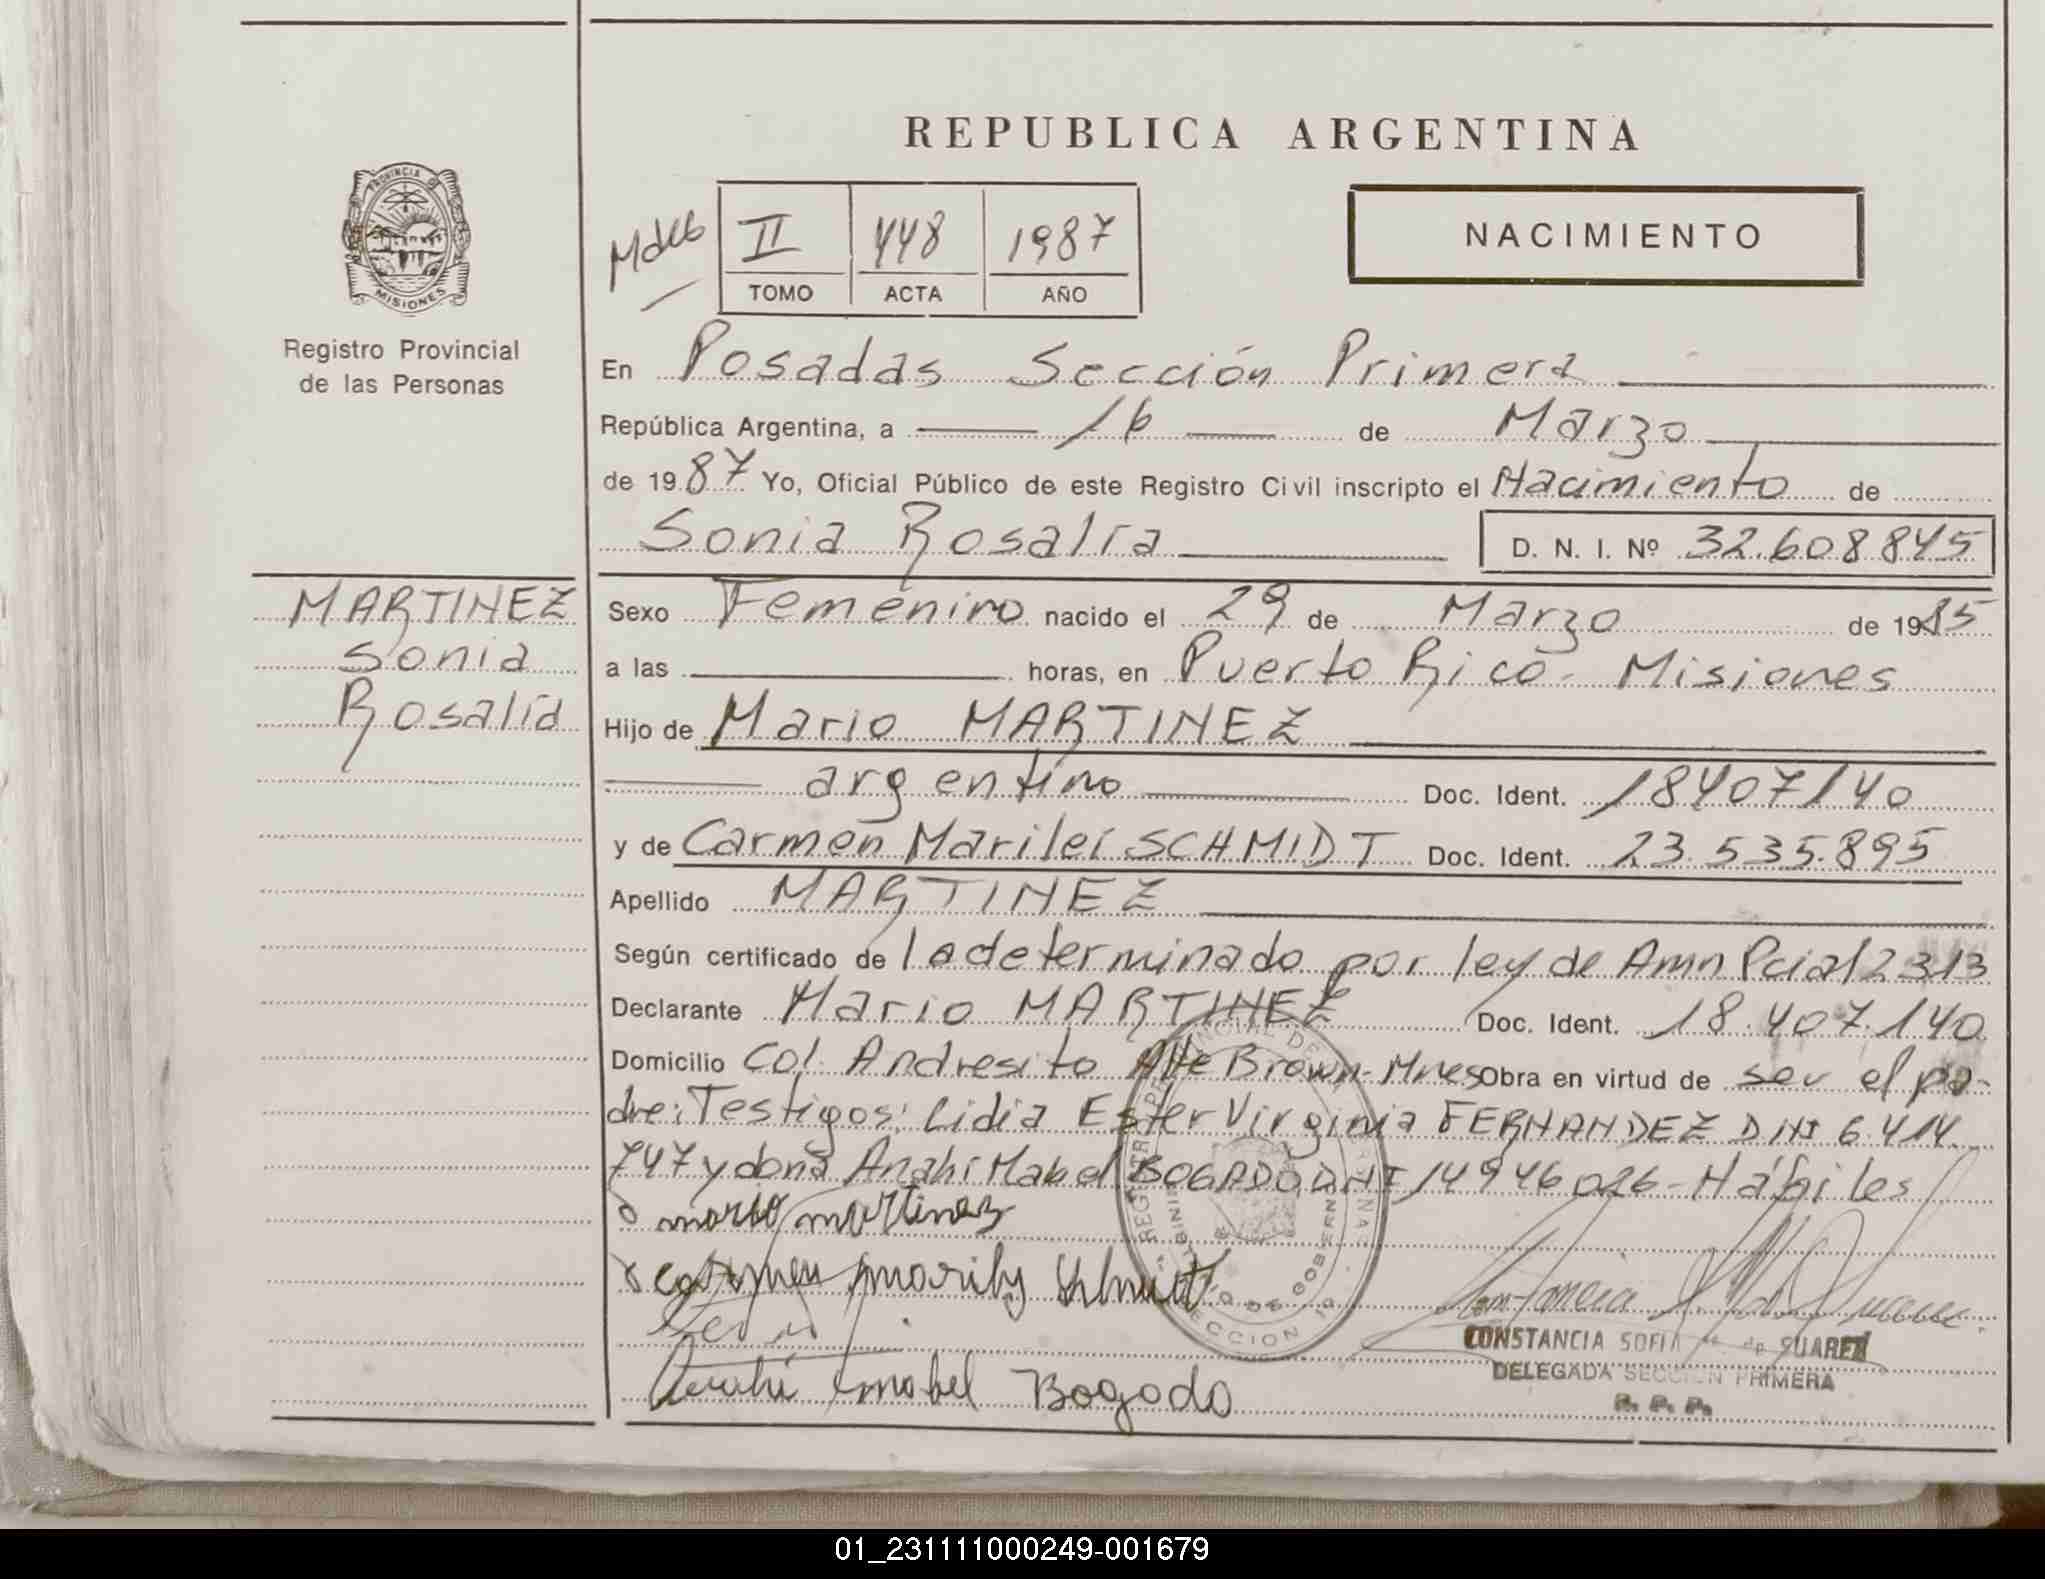 REPUBLICA ARGENTINA
PROVINCIA DE
MISIONES
Registro Provincial
de las Personas
II 448 1987
TOMO ACTA AÑO
NACIMIENTO
En Posadas Sección Primera
República Argentina, a 16 de Marzo
de 1987 Yo, Oficial Público de este Registro Civil inscripto el Nacimiento de
Sonia Rosalía D. N. I. Nº 32.608845
MARTINEZ
Sonia
Rosalía
Sexo Femenino nacido el 29 de Marzo de 1985
a las horas, en Puerto Rico - Misiones
Hijo de Mario MARTINEZ
argentino Doc. Ident. 18407140
y de Carmen Marilei SCHMIDT Doc. Ident. 23.535.895
Apellido MARTINEZ
Según certificado de lo determinado por ley de Amn Pcial 2313
Declarante Mario MARTINEZ Doc. Ident. 18.407.140
Domicilio Col. Andresito Alte Brown - Mnes Obra en virtud de ser el pa-
dre: Testigos: Lidia Ester Virginia FERNANDEZ DNI 6.414.
747 y doña Anahí Mabel BOGADO DNI 14946026 - Hábiles
mario martinez
carmen marily Schmit
Anahi mabel Bogado
CONSTANCIA SOFIA de SUAREZ
DELEGADA SECCION PRIMERA
R. P. P.
01_231111000249-001679